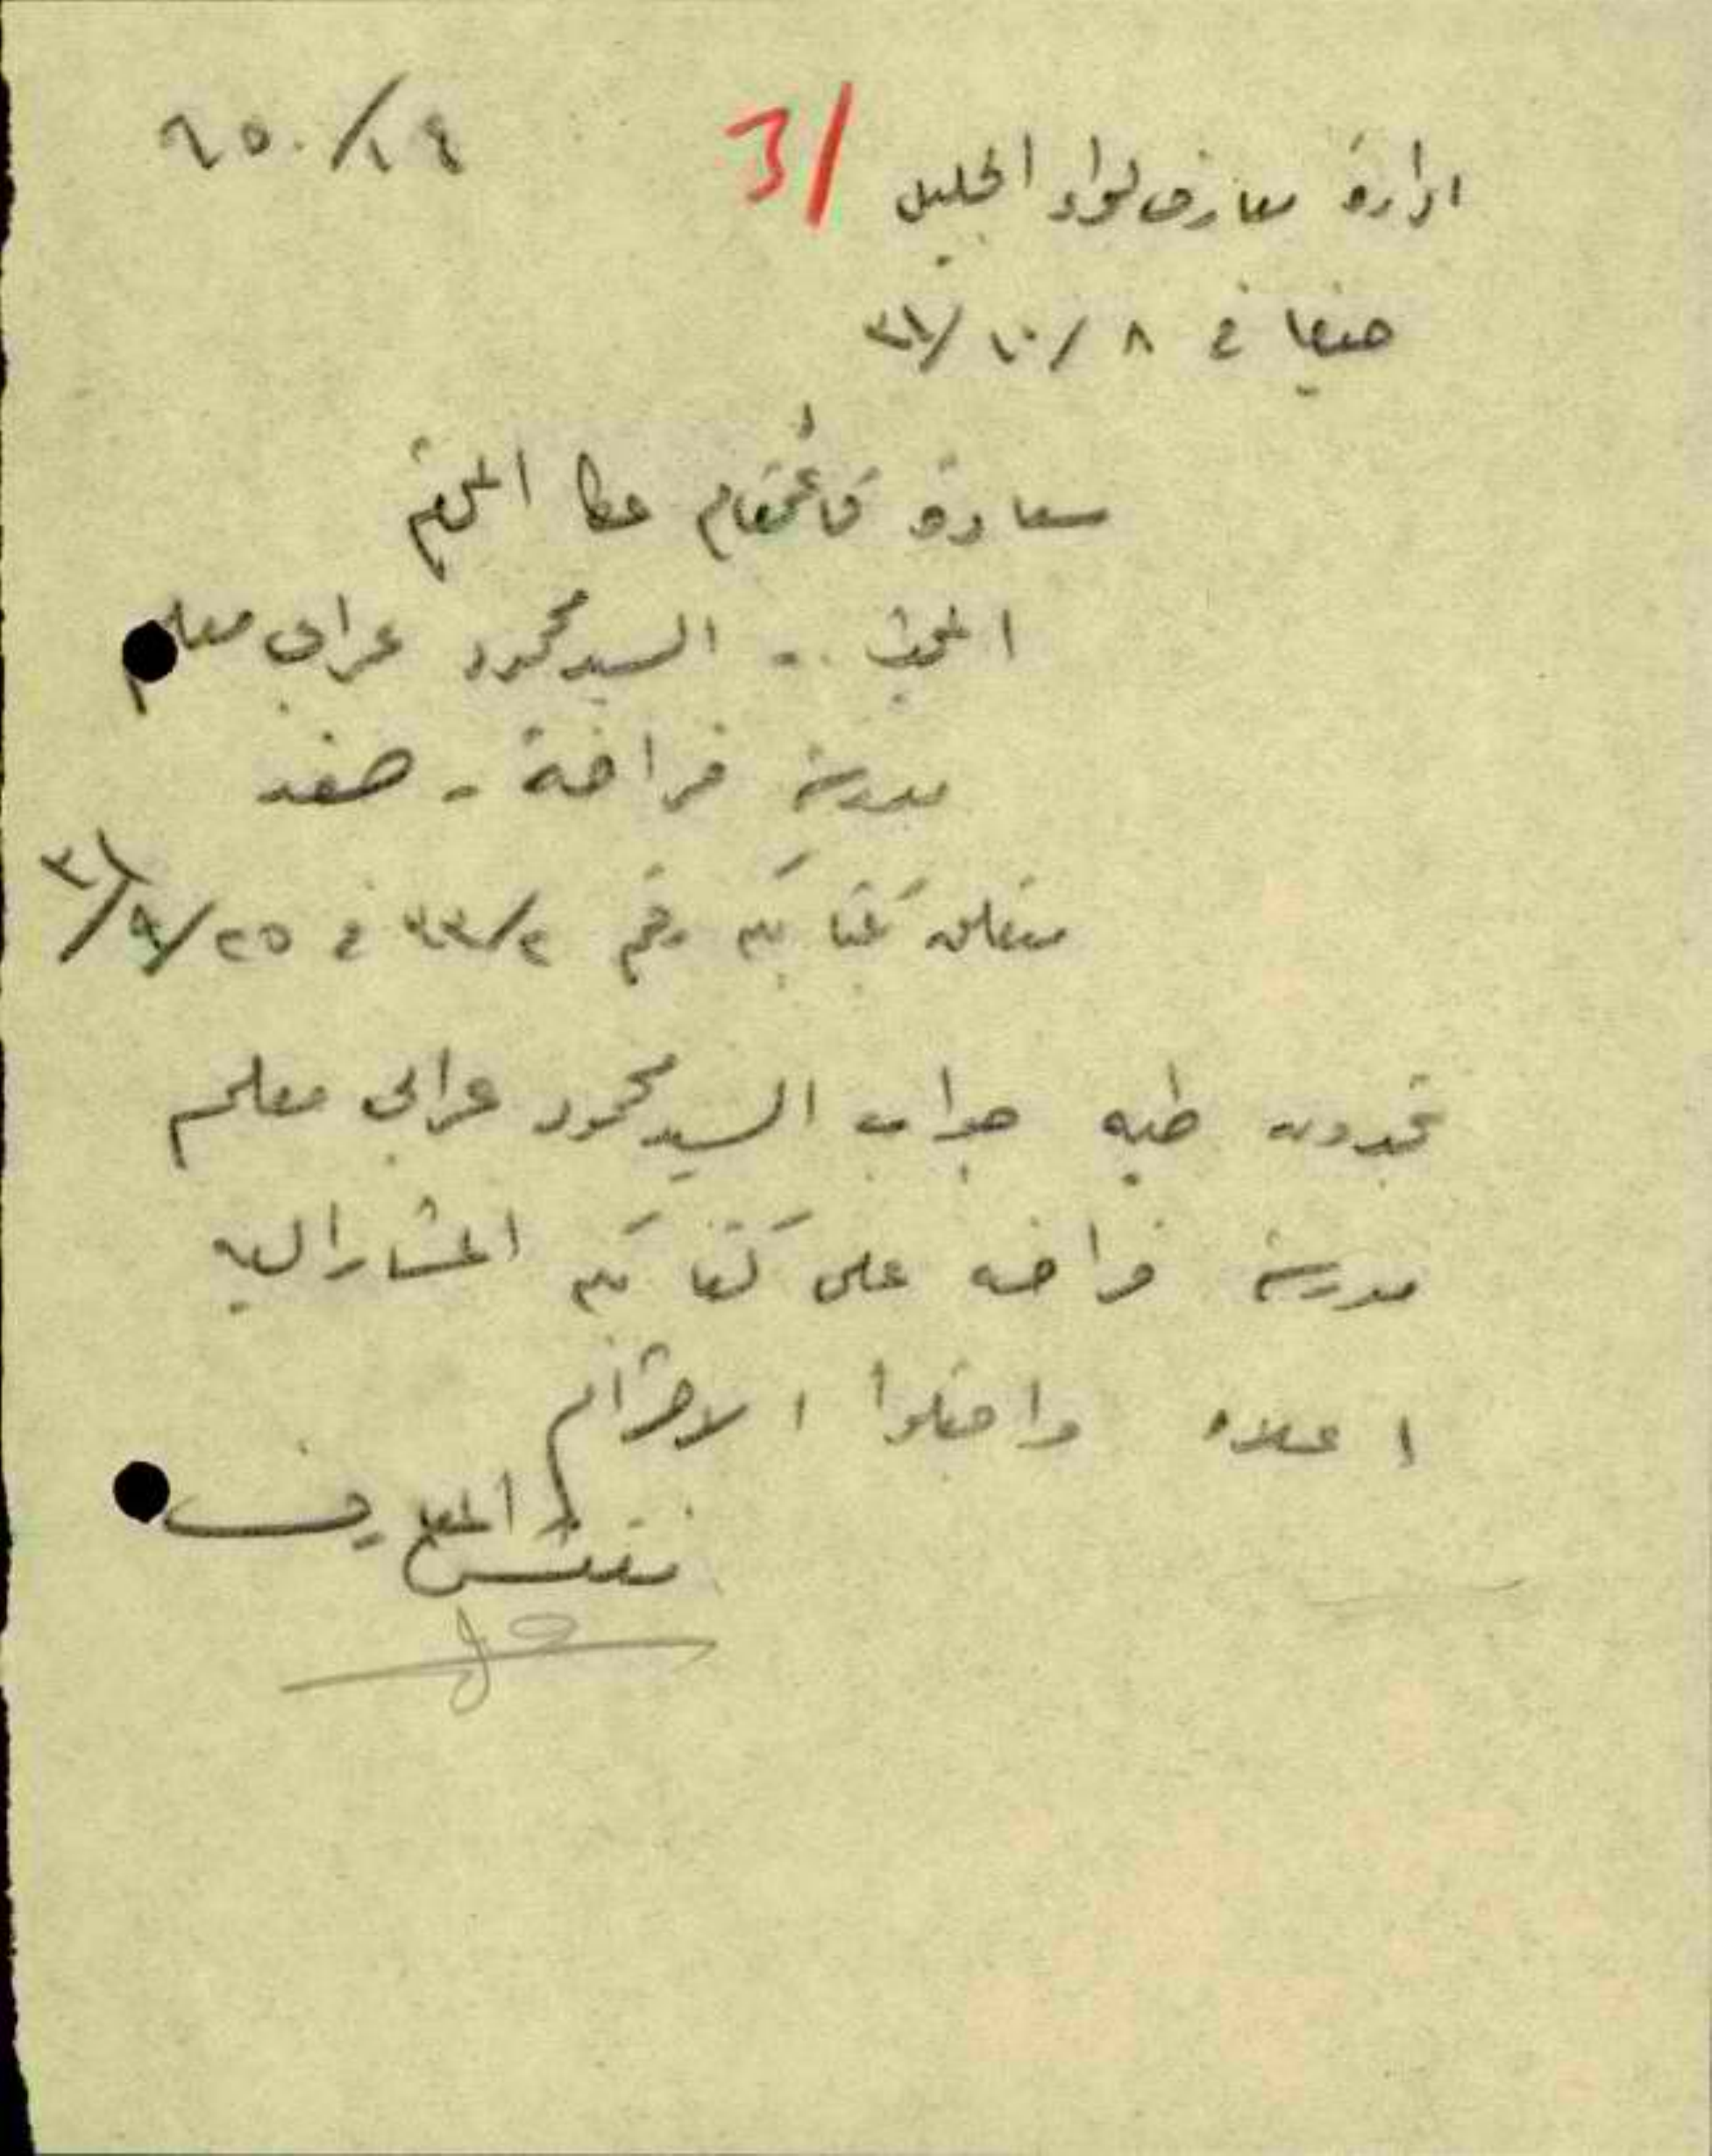 ٦٥٠/١٤
31
ادارة معارف لواء الجليل
حيفا في ٨ /١٠/ ٣١
سعادة قائمقام عكا المحترم
السيد محمود عرابي معلم
مدرسة فراضة - صفد
متعلق بكتابكم رقم في ٢٥/٩/٣١
تجدون طيه جواب السيد محمود عرابي معلم
مدرسة فراضه على كتابكم المشار اليه
اعلاه واقبلوا الاحترام
مفتش المعارف